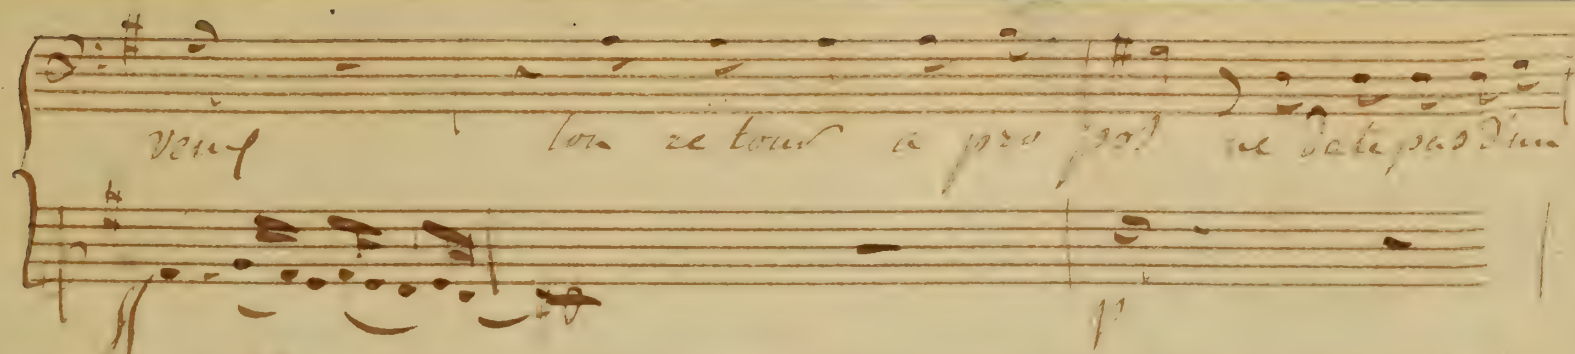 veux ton re tour a pro pos ne date pas d'un
ff p